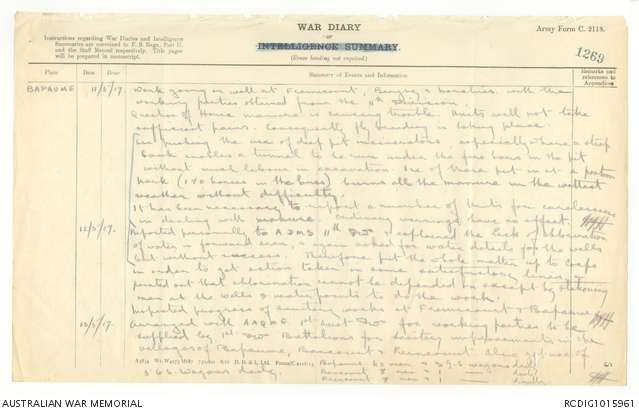 WAR DIARY
or
INTELLIGENCE SUMMARY.
(Erase heading not required.)
Army Form C. 2118.
1269
Instructions regarding War Diaries and Intelligence
Summaries are contained in F.S. Regs., Part II.
and the Staff Manual respectively. Title pages
will be prepared in manuscript.
Place
Date
Hour
Summary of Events and Information
Remarks and
references to
Appendices
BAPAUME 11/5/17. Work going on well at Fremicourt, Beugny & with the
working parties obtained from the 11th Division.
Question of Horse manure is causing trouble. Units will not take
sufficient pains. Consequently fly breeding is taking place.
Am pushing the use of deep pit incinerators, especially where a steep
bank enables a tunnel to be run under the fire bars in the pit
without much labour in excavation. One of these put in at a
(140 horses in the lines) burns all the manure in the wettest
weather without difficulty.
It has been necessary to report a number of Units for carelessness
in dealing with manure. Ordinary warnings have no effect.
12/5/17. Reported personally to ADMS 11th Div & explained the lack of chlorination
of water in forward area, & again asked for water details for the wells
but without success. Therefore put the whole matter up to Corps
in order to get action taken on some satisfactory lines &
pointed out that chlorination cannot be depended on except by stationing
men at the wells & water points to do the work.
Inspected progress of sanitary works at Fremicourt & Bapaume
12/5/17. Arranged with 1st Div for working parties to be
supplied by 1st Div Battalions for sanitary improvements in the
villages of Bapaume, Bancourt & Fremicourt. Also get use of
3 G.S. Wagons daily.
Bapaume men G.S. wagons daily
Bancourt 8 men 1 daily
AUSTRALIAN WAR MEMORIAL
RCDIG1015961